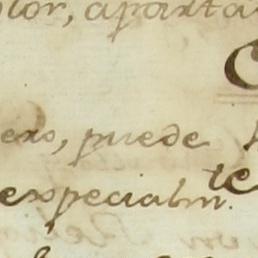 lor, aparta
C
ero, puede
expecialm.te